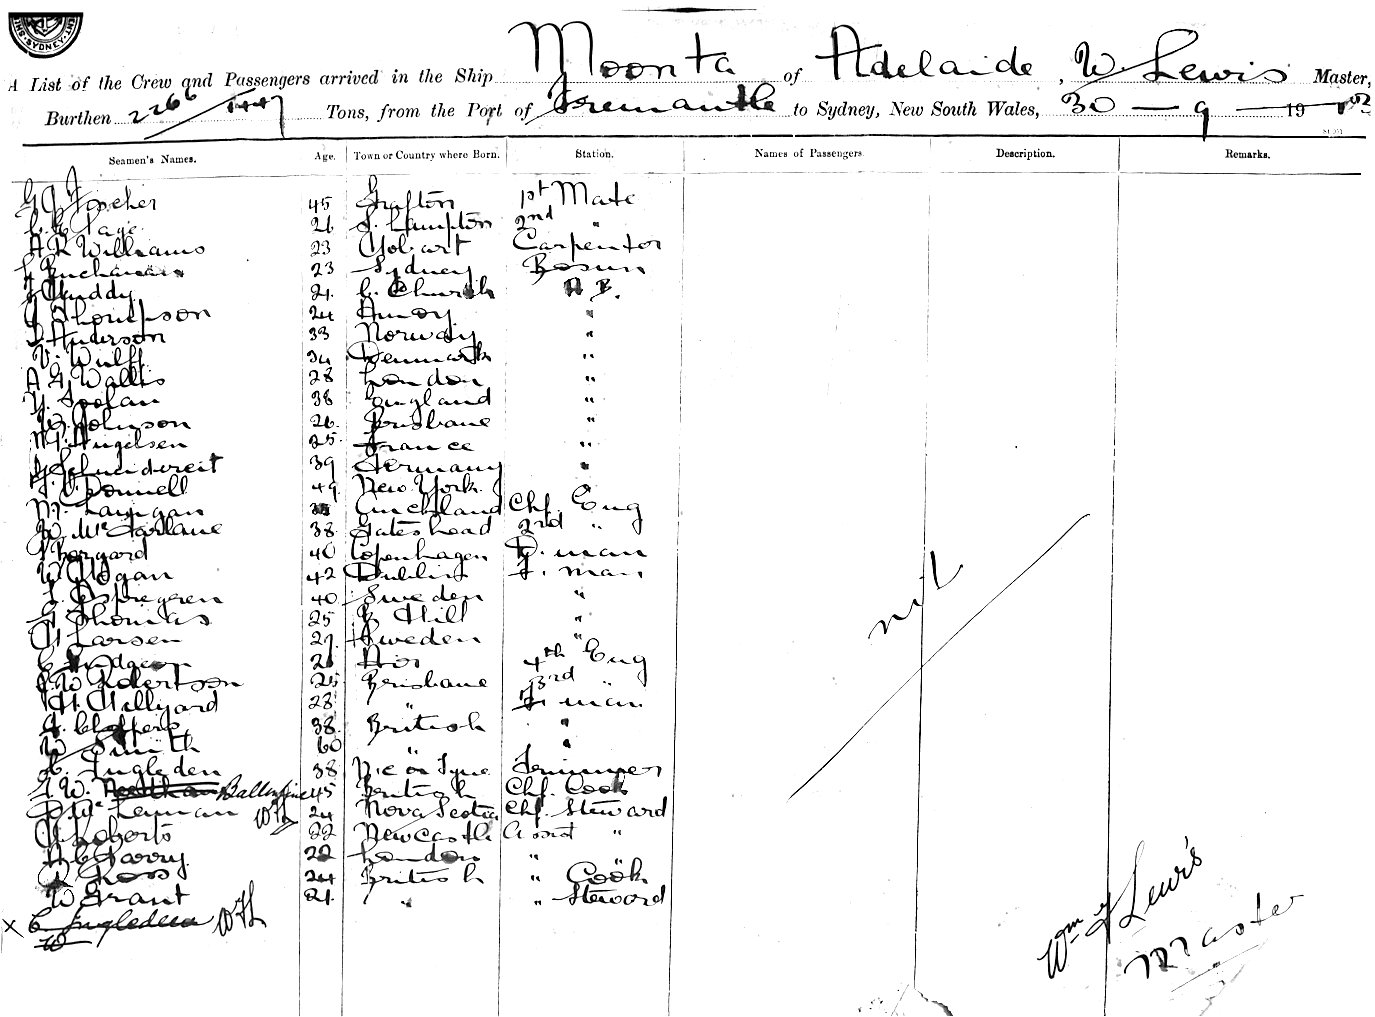 SYDNEY
A List of the Crew and Passengers arrived in the Ship Moonta of Adelaide, W. Lewis Master,
Burthen 2266/1447 Tons, from the Port of Fremantle to Sydney, New South Wales, 30 - 9 - 19
Seamen's Names. Age. Town or Country where Born. Station. Names of Passengers Description. Remarks.
45 Grafton 1st Mate
C. E. Page 26 S. Hampton 2nd "
A R Williams 23 Hobart Carpenter
Buchanan 23 Sydney Bosun
J Chuddy 21. C. Church A B.
J Thompson 24 Amoy "
Anderson 33 Norway "
V. Wulff 34 Denmark "
A G Wallis 28 London "
Toolan 38 England "
W. Johnson 26. Brisbane "
Angelsen 35. France "
Schneidereit 39 Germany "
J. O'Donnell 49 New York. "
M. Langan Auckland Chf. Eng
W. McFarlane 38 Gateshead 2nd "
40 Copenhagen D. man
W Hogan 42 Dublin F. man
40 Sweden "
G Thomas 25 B Hill "
Larsen 29. Sweden "
4th Eng
W Robertson 25 Brisbane 3rd "
H. Hillyard 28 " F. man
38. British "
W Smith 60 " "
C. Ingleden 38 N.C. on Tyne Trimmer
W. Ballantine 45 British Chf. Cook
Mc Lennan 24 Nova Scotia Chf. Steward
Roberts 22 Newcastle Assist "
H C Parry. 22 London "
Ross 24 British " Cook
W Grant 21. " " Steward
x C Ingleden
W
nil
Wm J Lewis
Master